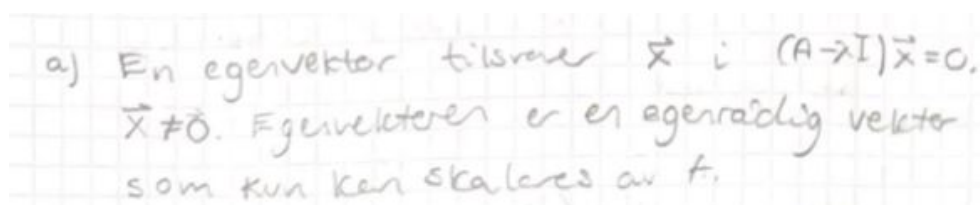 a) En egenvektor tilsvarer x⃗ i (A-λI)x⃗=0.
x⃗≠0⃗. Egenvektoren er en egenrådig vektor
som kun kan skaleres av A.